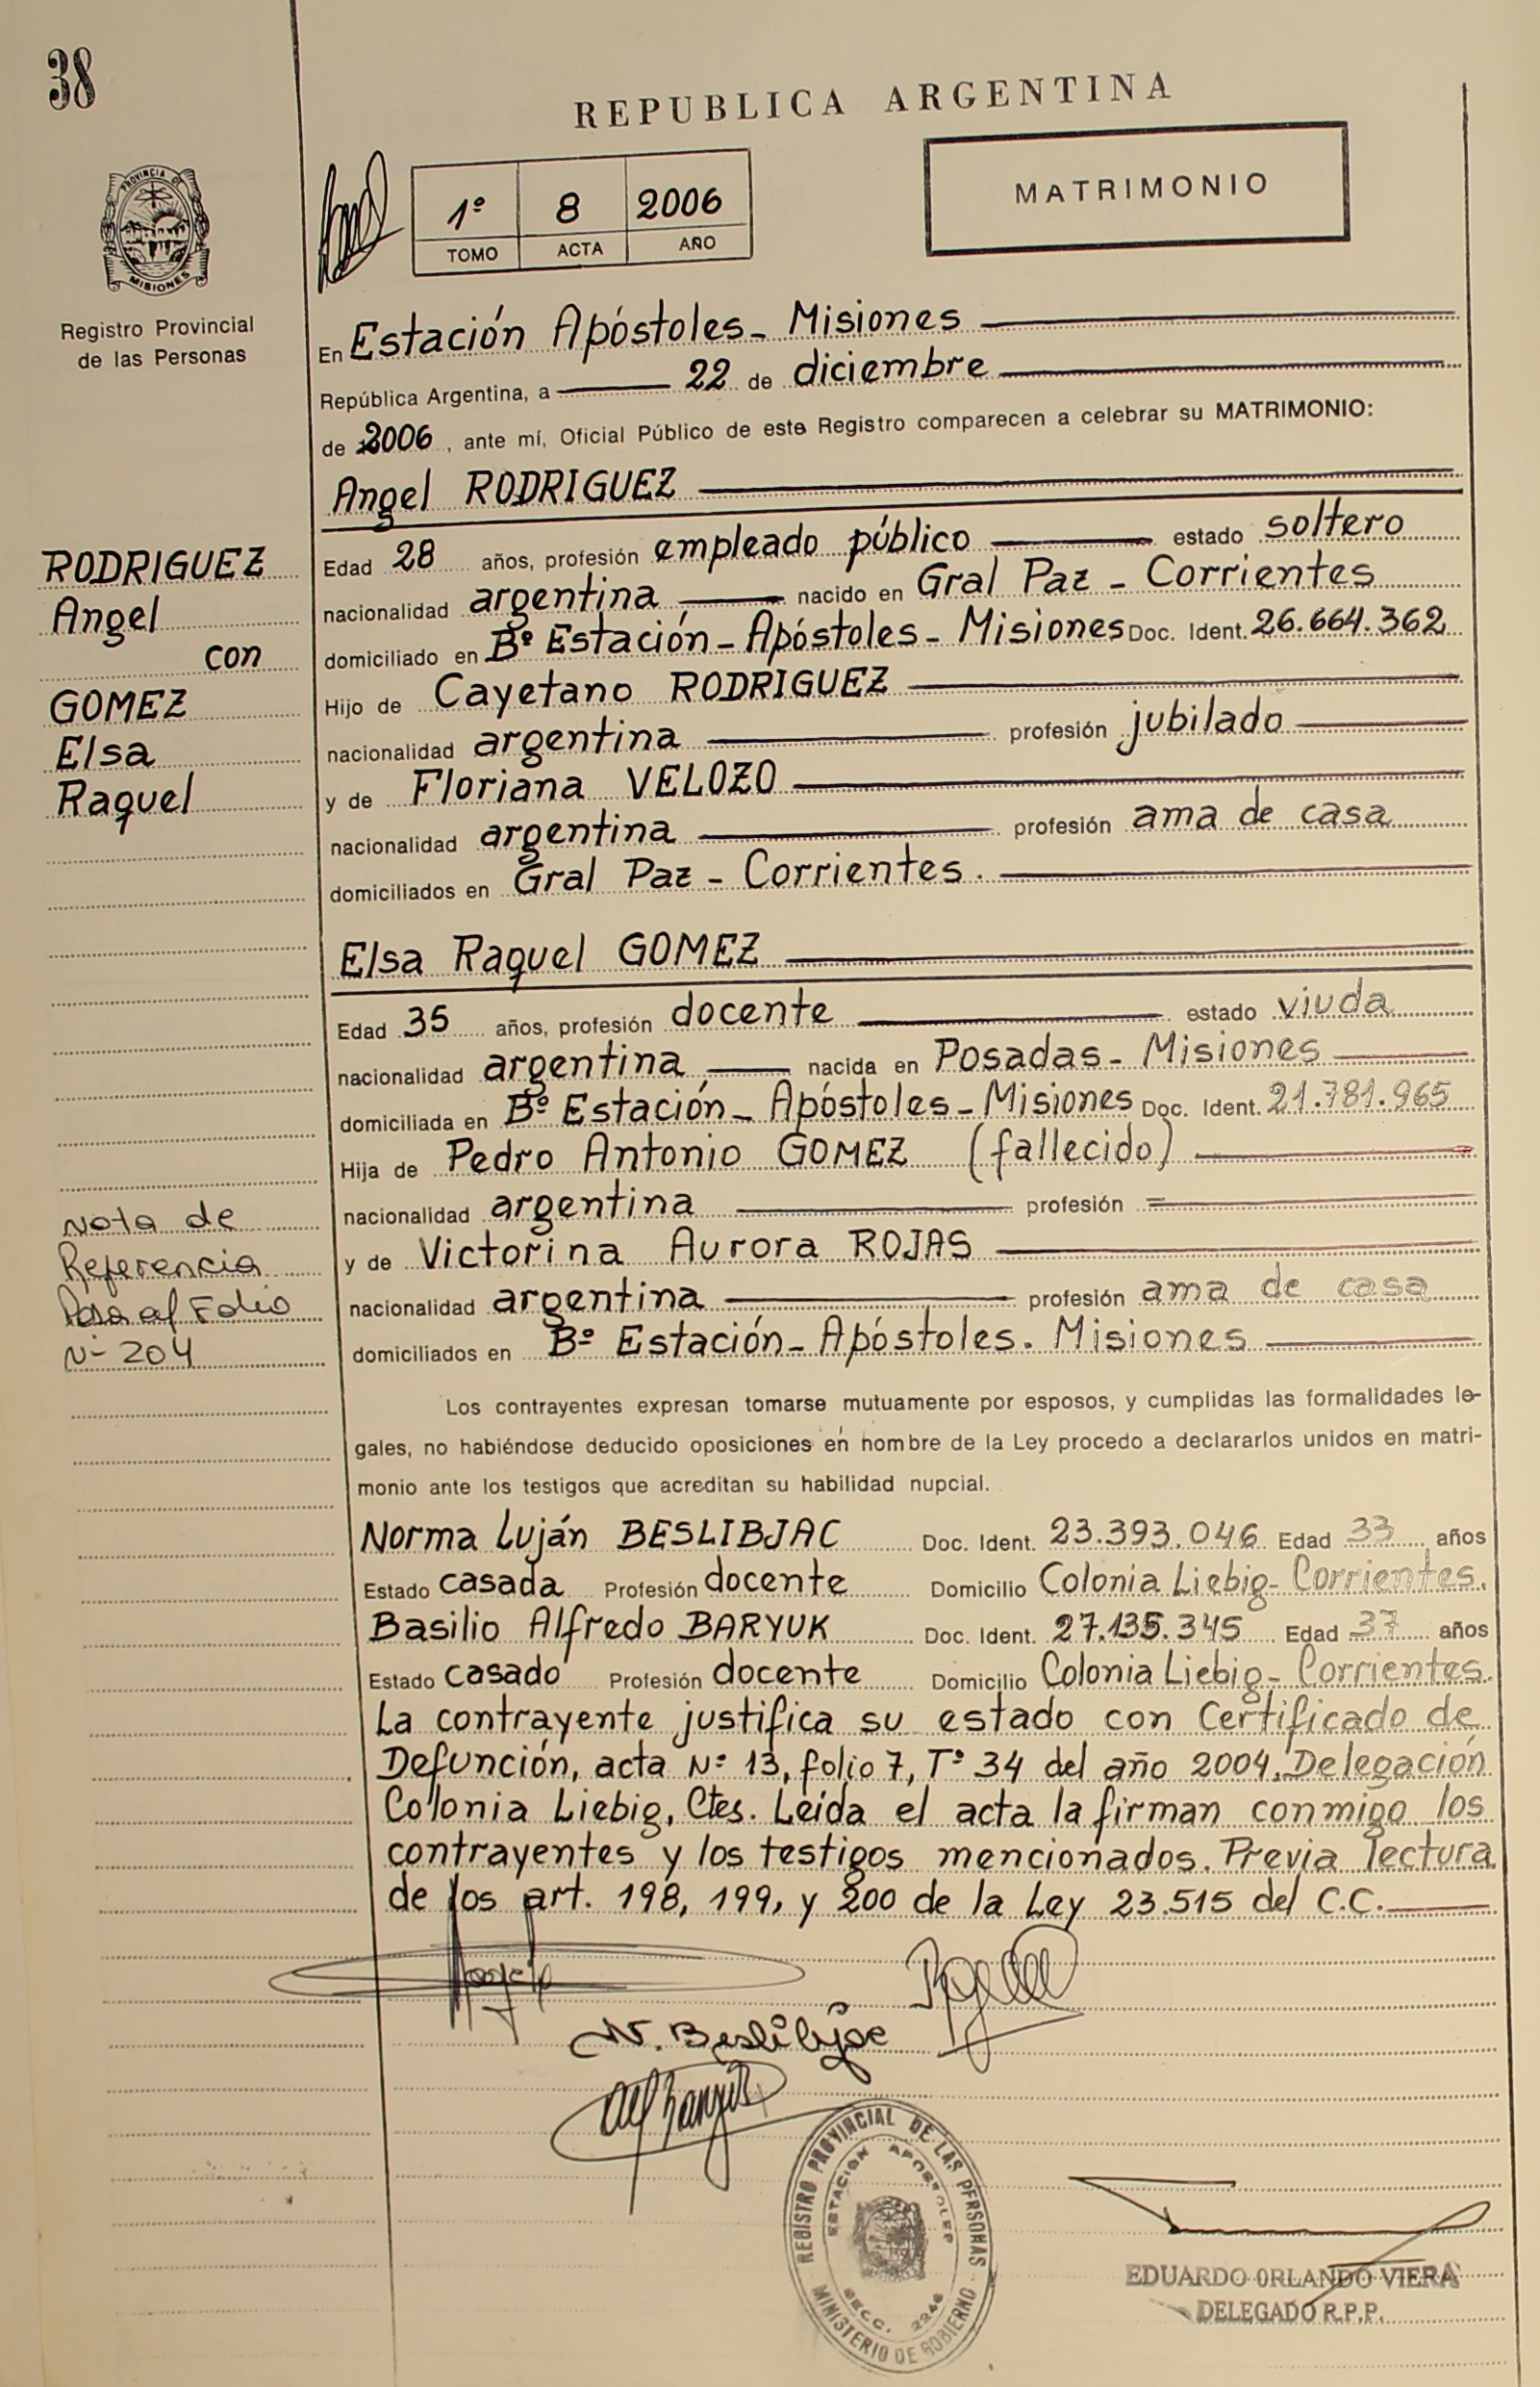 38
REPUBLICA ARGENTINA
MATRIMONIO
1º 8 2006
TOMO ACTA AÑO
PROVINCIA DE
MISIONES
Registro Provincial
de las Personas
En Estación Apóstoles - Misiones
República Argentina, a 22 de diciembre
de 2006, ante mí, Oficial Público de este Registro comparecen a celebrar su MATRIMONIO:
Angel RODRIGUEZ
RODRIGUEZ
Angel
con
GOMEZ
Elsa
Raquel
Edad 28 años, profesión empleado público estado soltero
nacionalidad argentina nacido en Gral Paz - Corrientes
domiciliado en Bº Estación - Apóstoles - Misiones Doc. Ident. 26.664.362
Hijo de Cayetano RODRIGUEZ
nacionalidad argentina profesión jubilado
y de Floriana VELOZO
nacionalidad argentina profesión ama de casa
domiciliados en Gral Paz - Corrientes.
Elsa Raquel GOMEZ
Edad 35 años, profesión docente estado viuda
nacionalidad argentina nacida en Posadas - Misiones
domiciliada en Bº Estación - Apóstoles - Misiones Doc. Ident. 21.781.965
Hija de Pedro Antonio GOMEZ (fallecido)
nacionalidad argentina profesión =
y de Victorina Aurora ROJAS
nacionalidad argentina profesión ama de casa
domiciliados en Bº Estación - Apóstoles. Misiones
Nota de
Referencia
Pasa al Folio
Nº 204
Los contrayentes expresan tomarse mutuamente por esposos, y cumplidas las formalidades le-
gales, no habiéndose deducido oposiciones en nombre de la Ley procedo a declararlos unidos en matri-
monio ante los testigos que acreditan su habilidad nupcial.
Norma Luján BESLIBJAC Doc. Ident. 23.393.046 Edad 33 años
Estado casada Profesión docente Domicilio Colonia Liebig - Corrientes.
Basilio Alfredo BARYUK Doc. Ident. 27.135.345 Edad 37 años
Estado casado Profesión docente Domicilio Colonia Liebig - Corrientes.
La contrayente justifica su estado con Certificado de
Defunción, acta Nº 13, folio 7, Tº 34 del año 2004, Delegación
Colonia Liebig, Ctes. Leída el acta la firman conmigo los
contrayentes y los testigos mencionados. Previa lectura
de los art. 198, 199, y 200 de la Ley 23.515 del C.C.
N. Beslibjac
REGISTRO PROVINCIAL DE LAS PERSONAS
ESTACION APOSTOLES
SECC. 2246
MINISTERIO DE GOBIERNO
EDUARDO ORLANDO VIERA
DELEGADO R.P.P.